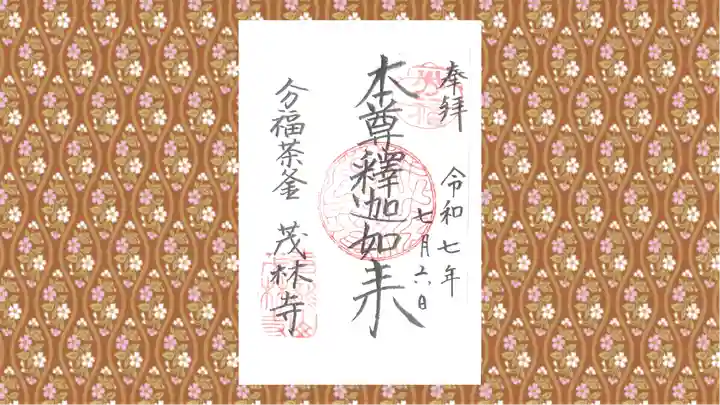 奉拝
令和七年
七月六日
本尊釋迦如来
分福茶釜 茂林寺